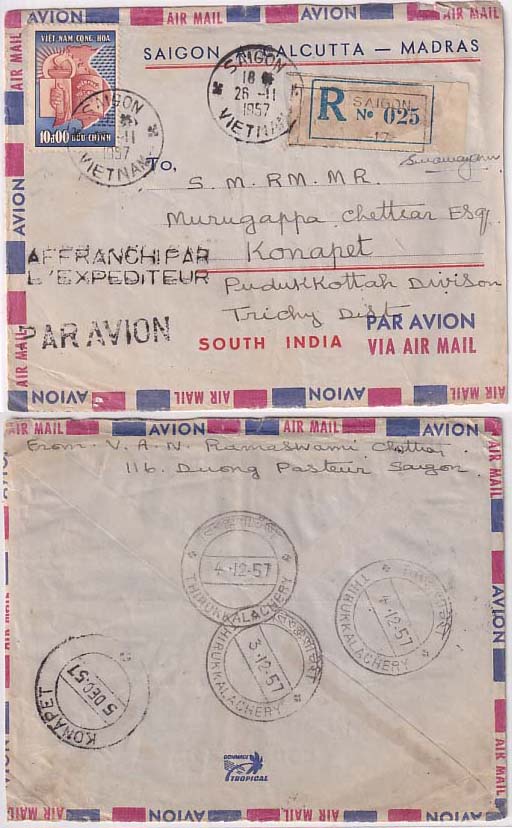 AIR MAIL AVION AIR MAIL AVION AIR MAIL AVION AIR MAIL
SAIGON – CALCUTTA – MADRAS
VIỆT-NAM CỘNG-HÒA
10đ00 BƯU-CHÍNH
SAIGON
-11
1957
VIETNAM
SAIGON
18
26 -11
1957
VIETNAM
R SAIGON
No 025
To,
S. M. RM. MR.
Murugappa Chettiar Esq.
Konapet
Pudukkottah Divison
Trichy Dist
SOUTH INDIA
AFFRANCHI PAR
L'EXPEDITEUR
PAR AVION
PAR AVION
VIA AIR MAIL
AVION
AIR MAIL
AVION
AIR MAIL
AVION
AIR MAIL AVION AIR MAIL AVION
AIR MAIL AVION AIR MAIL AVION
From. V. A. N. Ramaswami Chettiar
116. Duong Pasteur Saigon
THIRUKKALACHERY
4-12-57
THIRUKKALACHERY
3-12-57
THIRUKKALACHERY
4-12-57
KONAPET
5 DEC 57
TROPICAL
AVION
AIR MAIL
AVION
AIR MAIL
AVION
AIR MAIL AVION AIR MAIL AVION AIR MAIL